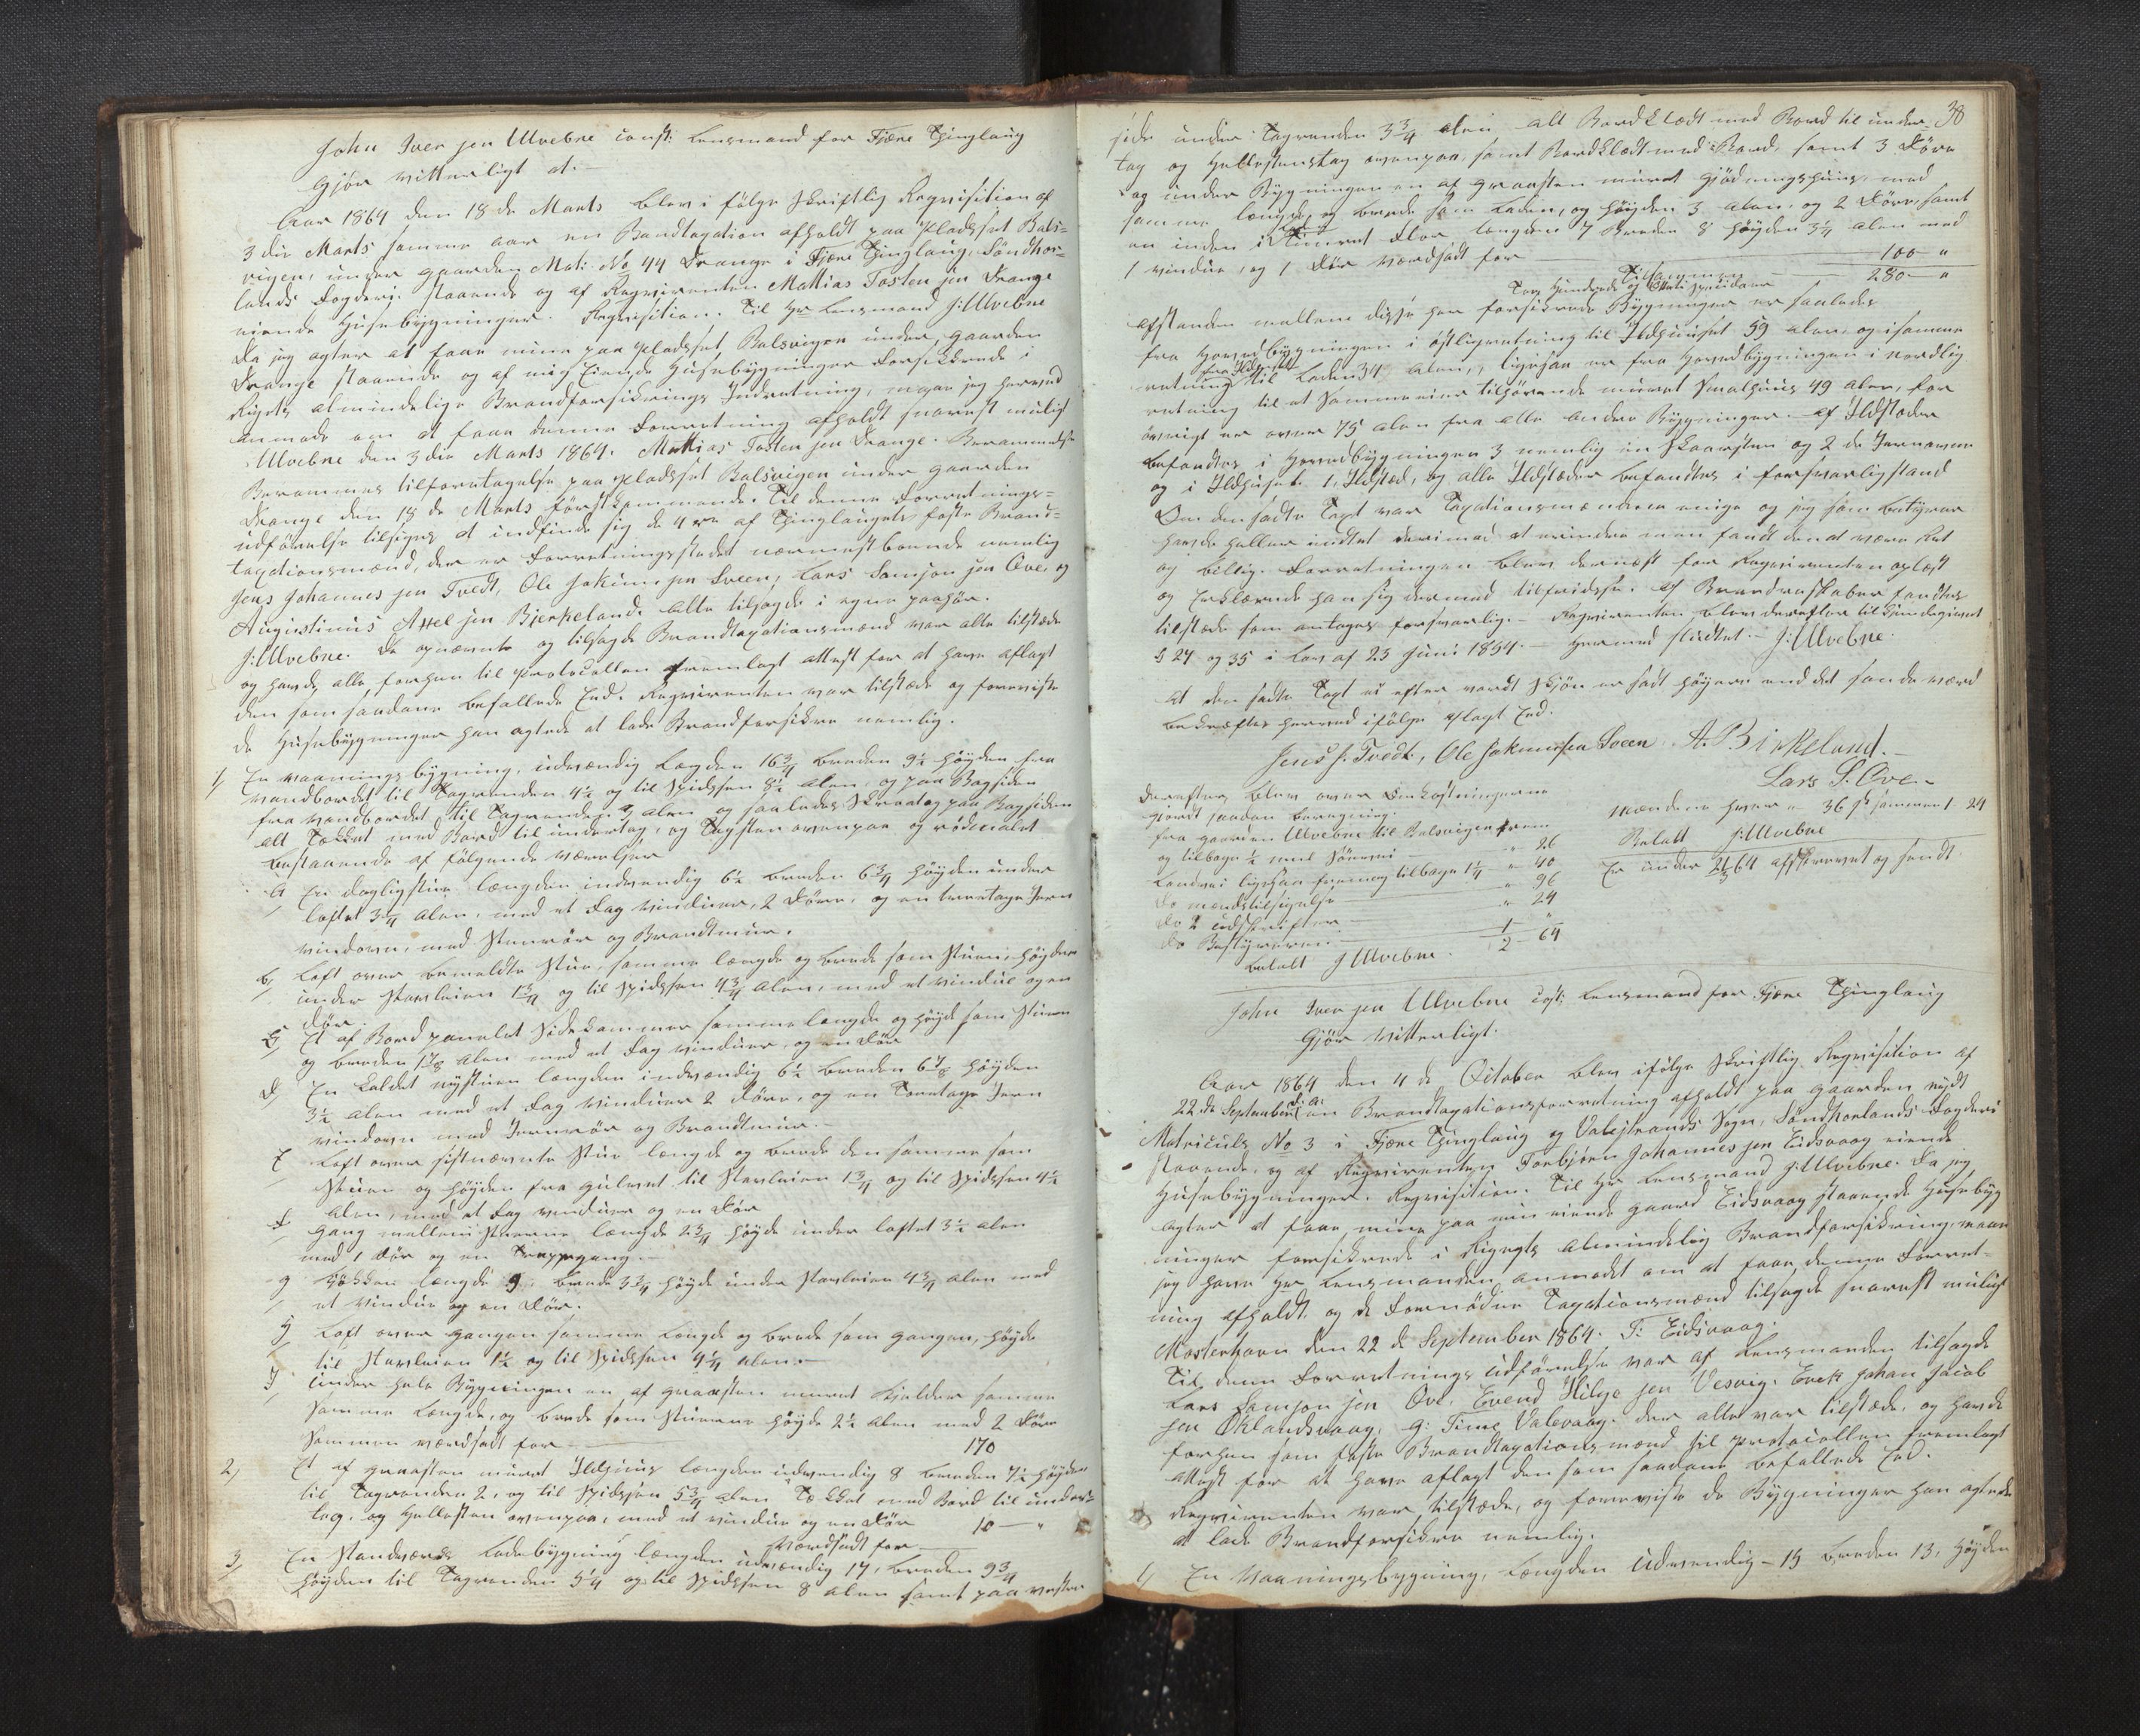 John Iversen Ulvebne const: Lensmand for Fjære Thinglaug
Gjør vitterligt at:-
Aar 1864 den 18de Marts blev i følge skriftlig Reqvisition af
3die Marts samme aar en Brandtaxation afholdt paa Pladsset Bals=
vigen, under gaarden Mat: No 44 Drange i Fjære Thinglaug, Søndhor-
lands Fogderi staaende og af Reqvirenten Mathias Tostensen Drange
eiende Husebygninger. Reqvisition. Til Hr Lensmand J: Ulvebne
Da jeg agter at faae mine paa Pladsset Balsvigen under gaarden
Drange staaende og af mig Eiende Husebygninger Forsikkrede i
Rigets almindelige Brandforsikrings Indretning, maae jeg herved
anmode om at faae denne Forretning afholdt snarest muligt
Ulvebne den 3die Marts 1864. Mathias Tostensen Drange. Berammelse
Berammes tilforetagelse paa Pladsset Balsvigen under gaarden
Drange den 18de Marts førstkommende. Til denne Forretnings=
udførelse tilsiges at indfinde sig de 4re af Thinglaugets faste Brand=
taxationsmænd, der er Forretningsstedet nærmest boende nemlig
Jens Johannessen Tvedt, Ole Jakimsen Sveen, Lars Samsonsen Ove, og
Augustinus Axelsen Bjerkeland. Alle tilsagde i egne paahør.
J: Ulvebne. De opnævnte og tilsagde Brandtaxationsmænd var alle tilstæde
og havde alle forhen til Protocollen fremlagt attest for at have aflagt
den som saadane befallede Eed. Reqvirenten var tilstæde og foreviste
de Husebygninger han agtede at lade Brandforsikre nemlig.
1, En vaaningsbygning, udvændig Længden 16 3/4 breden 9 1/2 høyden fra
vandbordet til Tagrenden 4 1/2 og til Spidssen 8 1/2 alen, og paa Bagsiden
fra vandbordet til Tagrenden alen og saaledes Skraatag paa Bagsiden
alt Tækket med Bord til undertag, og Tagsten ovenpaa og rødmalet
bestaaende af følgende værelser
a, En dagligstue længden indvendig 6 1/2 breden 6 3/4 høyden under
loftet 3 3/4 alen, med et Fag vinduer, 2 Døre, og en treetages Jern
vindovn, med Steenrør og Brandtmuur.
b, Loft over bemeldte Stue, samme længde og brede som Stuen, høyden
under Stavleien 1 3/4 og til Spidssen 4 3/4 alen, med et vindue og en
Dør
c, Et af Bord panelet Sidekammer samme længde og høyde som Stuen
og breden 1 7/8 alen med et Fag vinduer, og en Dør
d, En kaldet nystuen længden indvændig 6 1/2 breden 6 7/8 høyden
3 1/2 alen med et Fag vinduer 2 Døre, og en Toetages Jern
vindovn med Jernrør og Brandtmuur.-
e, Loft over sistnævnte Stue længde og brede den samme som
Stuen og høyden fra gulvet til Stavleien 1 3/4 og til Spidssen 4 1/2
alen, med et Fag vinduer og en Dør
f, Gang mellem Stuerne længde 2 3/4 høyde under loftet 3 1/2 alen
med 1 Dør og en Trappegang.-
g, Kjøkken længde 9. brede 3 3/4 høyde under Stavleien 4 3/4 alen med
et vindue og en Dør.
h, Loft over gangen samme længde og brede som gangen, høyde
til Stavleien 1 1/2 og til Spidssen 4 1/4 alen.-
i, Under hele Bygningen en af graasten muret Kjelder samme
samme længde, og brede som Stuerne høyde 2 1/2 alen med 2 Døre
Sammen værdsadt for - 170
2, Et af graasten muret Ildhuus længden udvendig 8 breden 7 1/2 høyden
til Tagrenden 2, og til Spidssen 5 3/4 alen Tækket med Bord til under=
tag, og Hellesten ovenpaa, med et vindue og en Dør
værdsadt for - 10 - "
3, En Standværks Ladebygning længden udvændig 17, breden 9 3/4
høyden til Tagrenden 5 1/4 og til Spidssen 8 alen samt paa vestre
38
side under Tagrenden 3 3/4 alen alt Bordklædt med Bord til under-
tag og Hellestenstag ovenpaa, samt Bordklædt med Bord, samt 3 Døre
og under Bygningen en af graasten muret Gjødningshuus, med
samme længde og brede som Laden, og høyden 3 alen, og 2 Døre, samt
en inden i Timret Flor længden 7 Breden 8 høyden 3 1/4 alen med
1 vindue, og 1 Dør værdsadt for - 100 "
Tilsammen - 280 - "
Toe Hundrede og Otteti Speciedaler
Afstanden mellem disse her forsikrede Bygninger er saaledes
fra Hovedbygningen i østligretning til Ildhuuset 59 alen og i samme
retning fra Ildhuset til Laden 34 alen, ligesaa er fra Hovedbygningen i nordlig
retning til et Sammeeier tilhørende muret Smalehuus 49 alen, for
øvrigt er over 75 alen fra alle andre Bygninger. Af Ildstæder
befandtes i Hovedbygningen 3 nemlig en Skaarsten og 2de Jernovne
og i Ildhuset 1. Ildsted, og alle Ildstæder befandtes i forsvarligstand
Om den sadte Taxt var Taxationsmændene enige og jeg som bestyrer
havde heller indtet derimod at erindre men fandt den at være Ret
og billig. Forretningen blev dernæst for Reqvirenten oplæst
og Erklærede han sig dermed tilfreidsse. Af Brandredskaber fandtes
tilstæde som antages forsvarlig.- Reqvirenten blev derefter tilkjendegivet
§ 24 og 35 i Lov af 23 Juni 1854.- Hermed sluttet.- J: Ulvebne.
At den sadte Taxt ei efter vordt Skjøn er sadt høyere end det sande værd
bekræftes herved ifølge aflagt Eed.
Jens J. Tvedt, Ole Jakimsen Sveen A. Birkeland.-
Lars S. Ove.-
Derefter blev over Omkostningerne
gjordt saadan beregning.
fra gaarden Ulvebne til Balsvigen frem
og tilbage 1/2 miil Søevei - " 26
Landvei ligesaa frem og tilbage 1 1/4 - " 40
do mændstilsigelse - " 96
do 2 udskrifter - " 24
do Bestyreren - 1 "
2 - 64
Betalt J Ulvebne.
Mændene hver " 36 sk sammen 1. 24
Betalt J: Ulvebne
Er under 21/3 64 afskrevet og sendt.
John Iversen Ulvebne cost: Lensmand for Fjære Thinglaug
Gjør vitterligt.
Aar 1864 den 4de October blev ifølge skriftlig Reqvisition af
22de September d: A: en Brandtaxationsforretning afholdt paa gaarden
Matriculs No 3 i Fjære Thinglaug og Valestrands Sogn, Søndhorlands Fogderi
staaende, og af Reqvirenten Torbjørn Johannessen Eidsvaag eiende
Husebygninger. Reqvisition. Til Hr Lensmand J: Ulvebne. Da jeg
agter at faae mine paa min eiende gaard Eidsvaag staaende Husebyg
ninger forsikrede i Rigets almindelig Brandforsikring, maae
jeg have Hr Lensmanden anmodet om at faae denne Forret-
ning afholdt, og de Fornødne Taxationsmænd tilsagde snarest muligt
Mosterhavn den 22de September 1864. T: Eidsvaag.
Til denne Forretnings udførelse var af Lensmanden tilsagde
Lars Samsonsen Ove, Evend Hilgesen Vesvig, Enek Johan Jacob
sen Øklandsvaag, G: Time Valevaag, der alle var tilstæde, og havde
forhen som faste Brandtaxationsmænd til Protocollen fremlagt
attest for at have aflagt den som saadane befallede Eed.
Reqvirenten var tilstæde, og foreviste de Bygninger han agtede
at lade Brandforsikre nemlig.
1, En Vaaningsbygning, længden udvendig - 15 breden 13, høyden